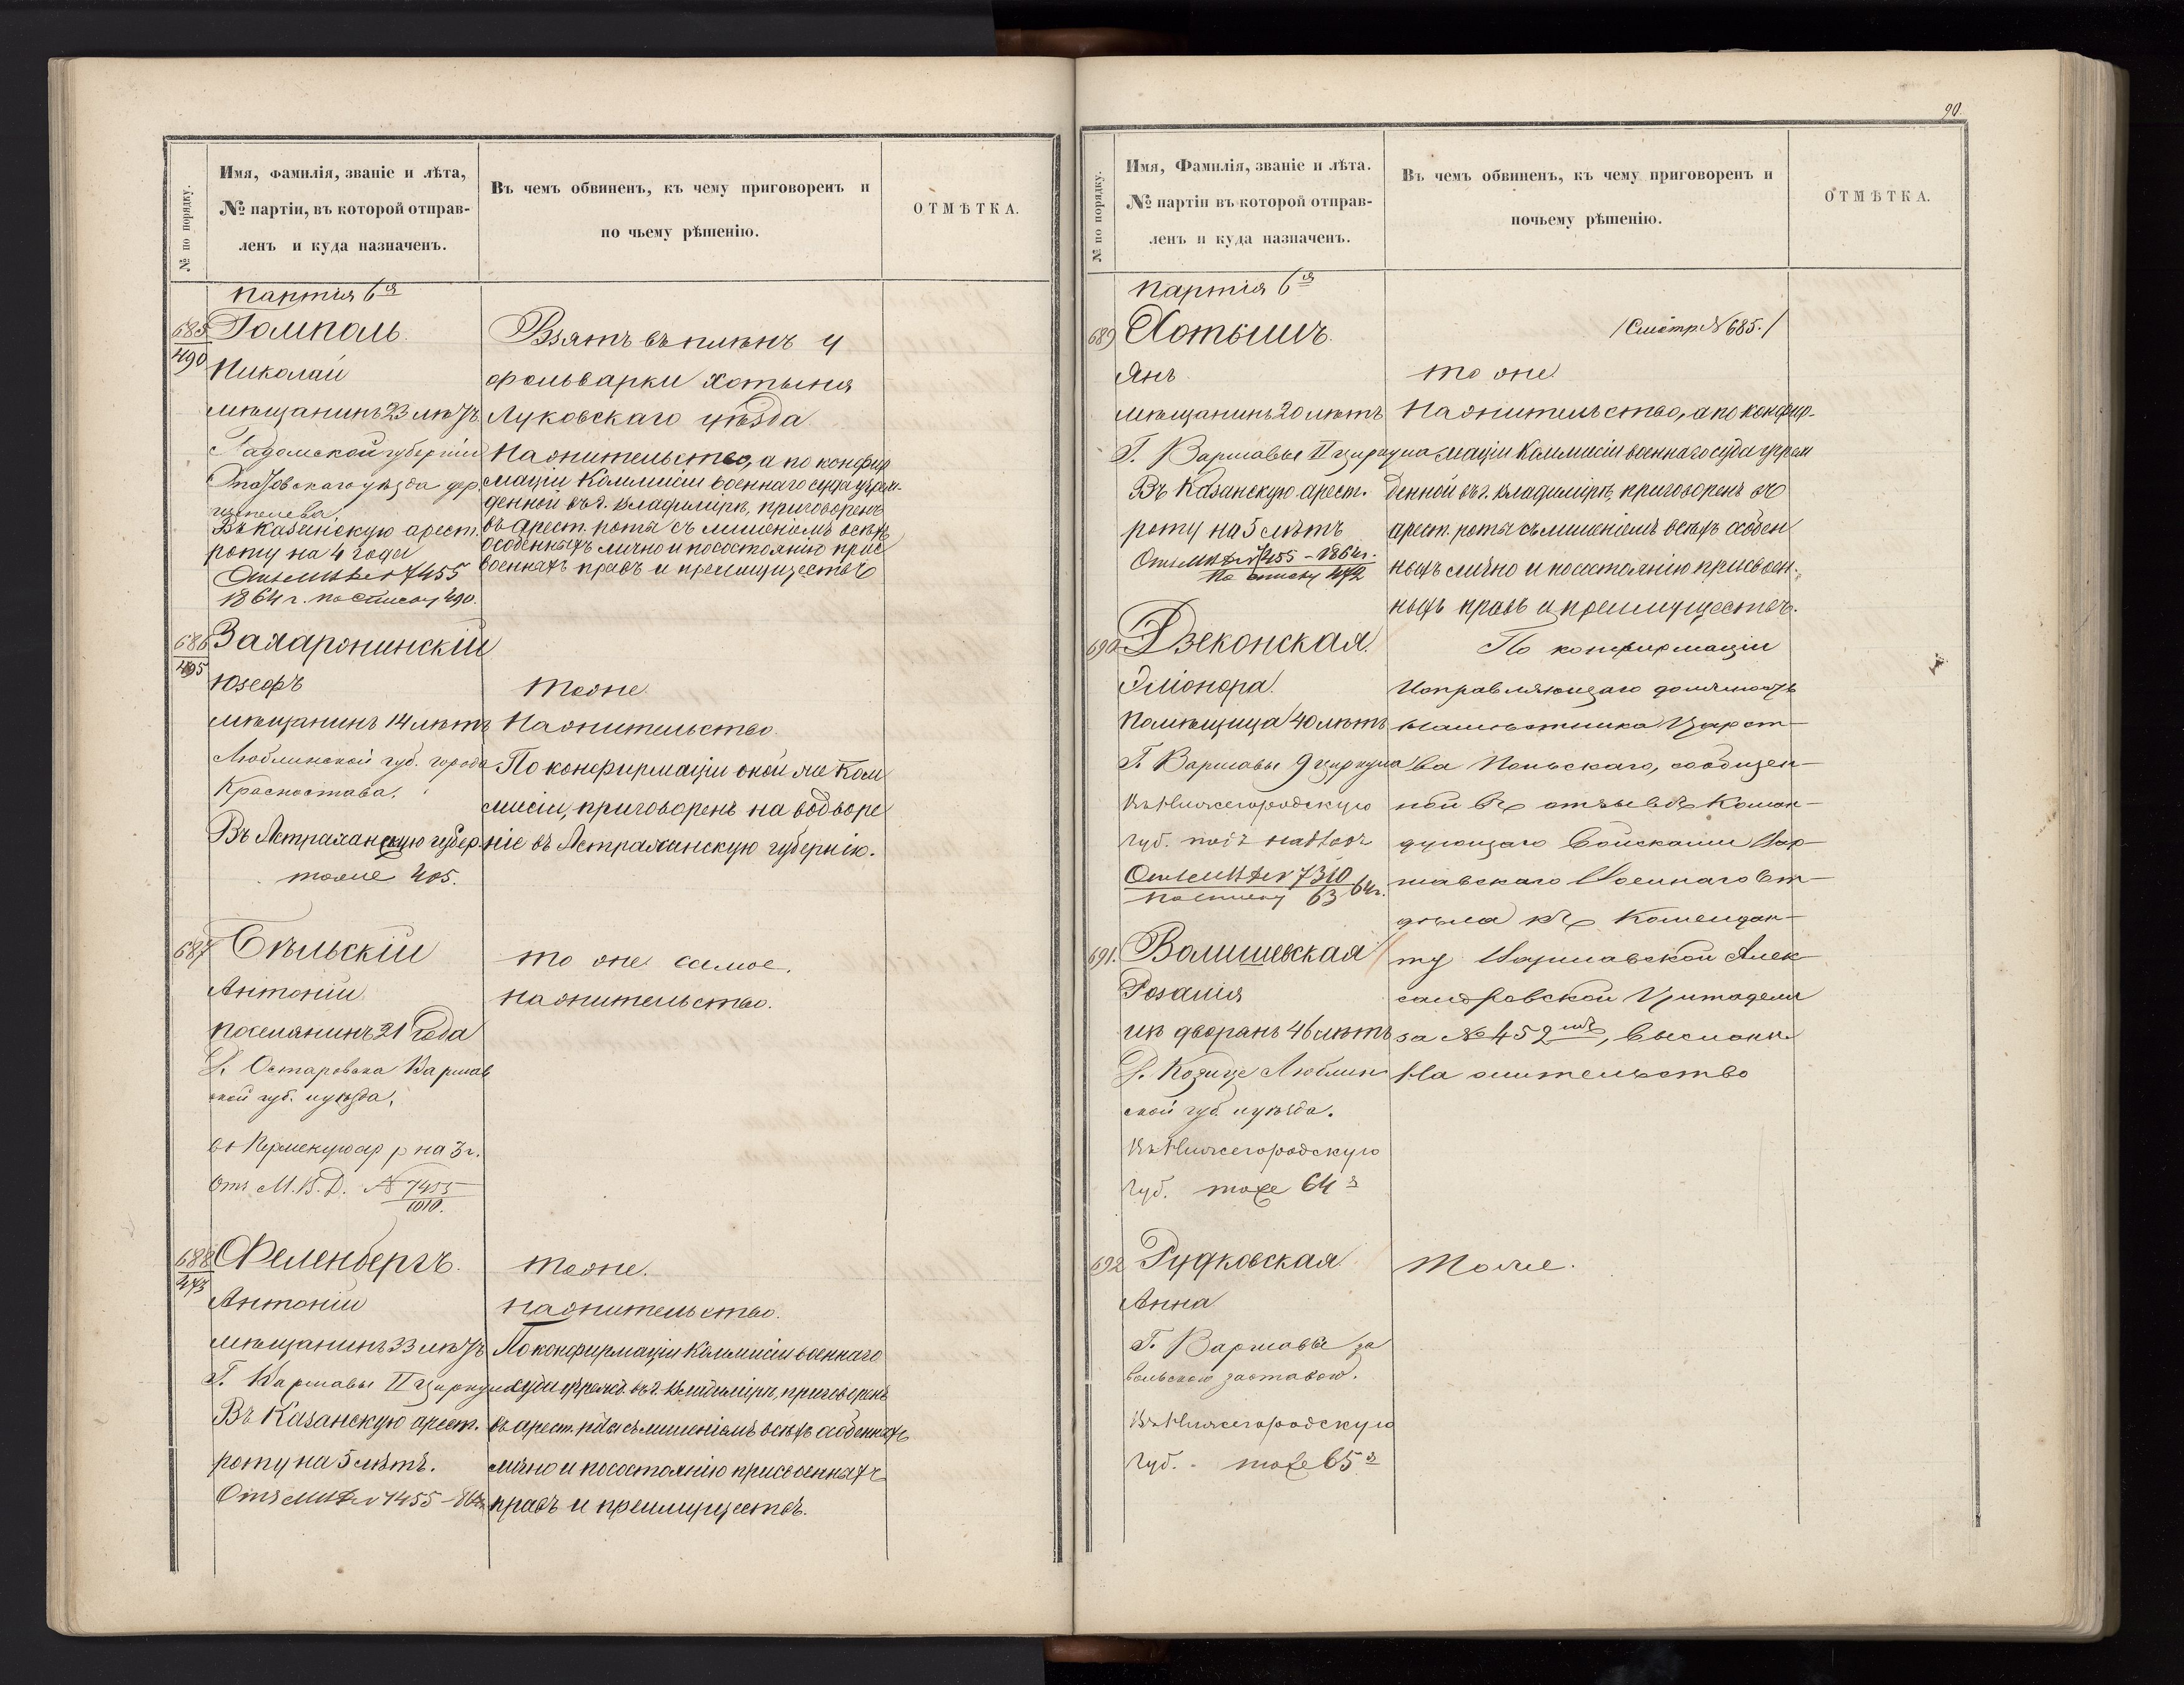 90.
№ по порядку.
Имя, фамилія, званіе и лѣта,
№ партіи, въ которой отправ-
ленъ и куда назначенъ.
Въ чемъ обвиненъ, къ чему приговоренъ и
по чьему рѣшенію.
ОТМѢТКА.
партія 6я
685
490
Гомполь
Николай
мѣщанинъ 23 лѣтъ
Радомской губерніи
Опатовскаго уѣзда дер.
Въ Казанскую арест.
роту на 4 года
Отн. МВД № 7455
1864 г. по списку 490.
Взятъ въ плѣнъ у
фольварки Хотыня
Луковскаго уѣзда
На жительство, а по конфир
маціи Коммисіи военнаго суда учреж-
денной въ г. Владимірѣ, приговоренъ
въ арест. роты съ лишеніемъ всѣхъ
особенныхъ лично и по состоянію прис
военныхъ правъ и преимуществъ
686
495
Захаронинскій
Юзефъ
мѣщанинъ 14 лѣтъ
Люблинской губ. города
Красностава.
Въ Астраханскую губер.
тоже 495.
тоже
На жительство.
По конфирмаціи оной же Ком
мисіи, приговоренъ на водворе
ніе въ Астраханскую губернію.
687
Бѣльскій
Антоній
поселянинъ 21 года
Д. Остаровека Варшав
ской губ. и уѣзда.
въ Пермскую ар р на 3 г.
Отн М.В.Д. № 7455
1010.
то же самое.
на жительство.
688
473
Феленбергъ.
Антоній
мѣщанинъ 33 лѣтъ
Г. Варшавы II циркула
Въ Казанскую арест.
роту на 5 лѣтъ.
Отн МВД № 7455 - 864г.
тоже.
на жительство.
По конфирмаціи Коммисіи военнаго
суда учрежд. въ г. Владимірѣ, приговоренъ
въ арест. роты съ лишеніемъ всѣхъ особенныхъ
лично и по состоянію присвоенныхъ
правъ и преимуществъ.
№ по порядку.
Имя, Фамилія, званіе и лѣта.
№ партіи въ которой отправ-
ленъ и куда назначенъ.
Въ чемъ обвиненъ, къ чему приговоренъ и
почьему рѣшенію.
ОТМѢТКА.
партія 6я
689
Хотышъ.
Янъ
мѣщанинъ 20 лѣтъ
Г. Варшавы II циркула
Въ Казанскую арест.
роту на 5 лѣтъ
Отн МВД № 7455 - 1864г.
по списку 472
/Смотр. № 685./
то же
На жительство, а по конфир-
маціи Коммисіи военнаго суда учреж
денной въ г. Владимірѣ, приговоренъ въ
арест. роты съ лишеніемъ всѣхъ особен
ныхъ лично и по состоянію присвоен-
ныхъ правъ и преимуществъ.
690
Дзеконская
Эліонора.
Помѣщица 40 лѣтъ
Г. Варшавы 9 циркула
Въ Нижегородскую
губ. подъ надзоръ
Отн МВД № 7310 64г.
по списку 63
По конфирмаціи
Исправляющаго должность
Намѣстника Царст-
ва Польскаго, сообщен-
ной въ отзывѣ Коман-
дующаго Войсками Вар-
шавскаго Военнаго От-
дѣла къ Комендан-
ту Варшавской Алек
сандровской Цитадели
за № 452мъ, высланы
На жительство
691.
Волишевская
Розалія
изъ дворянъ 46 лѣтъ
Д. Козице Люблин
ской губ. и уѣзда.
Въ Нижегородскую
губ. тоже 64
692
Рудковская
Анна
Г. Варшавы за
вольскою заставою.
Въ Нижегородскую
губ. тоже 65
Тоже.